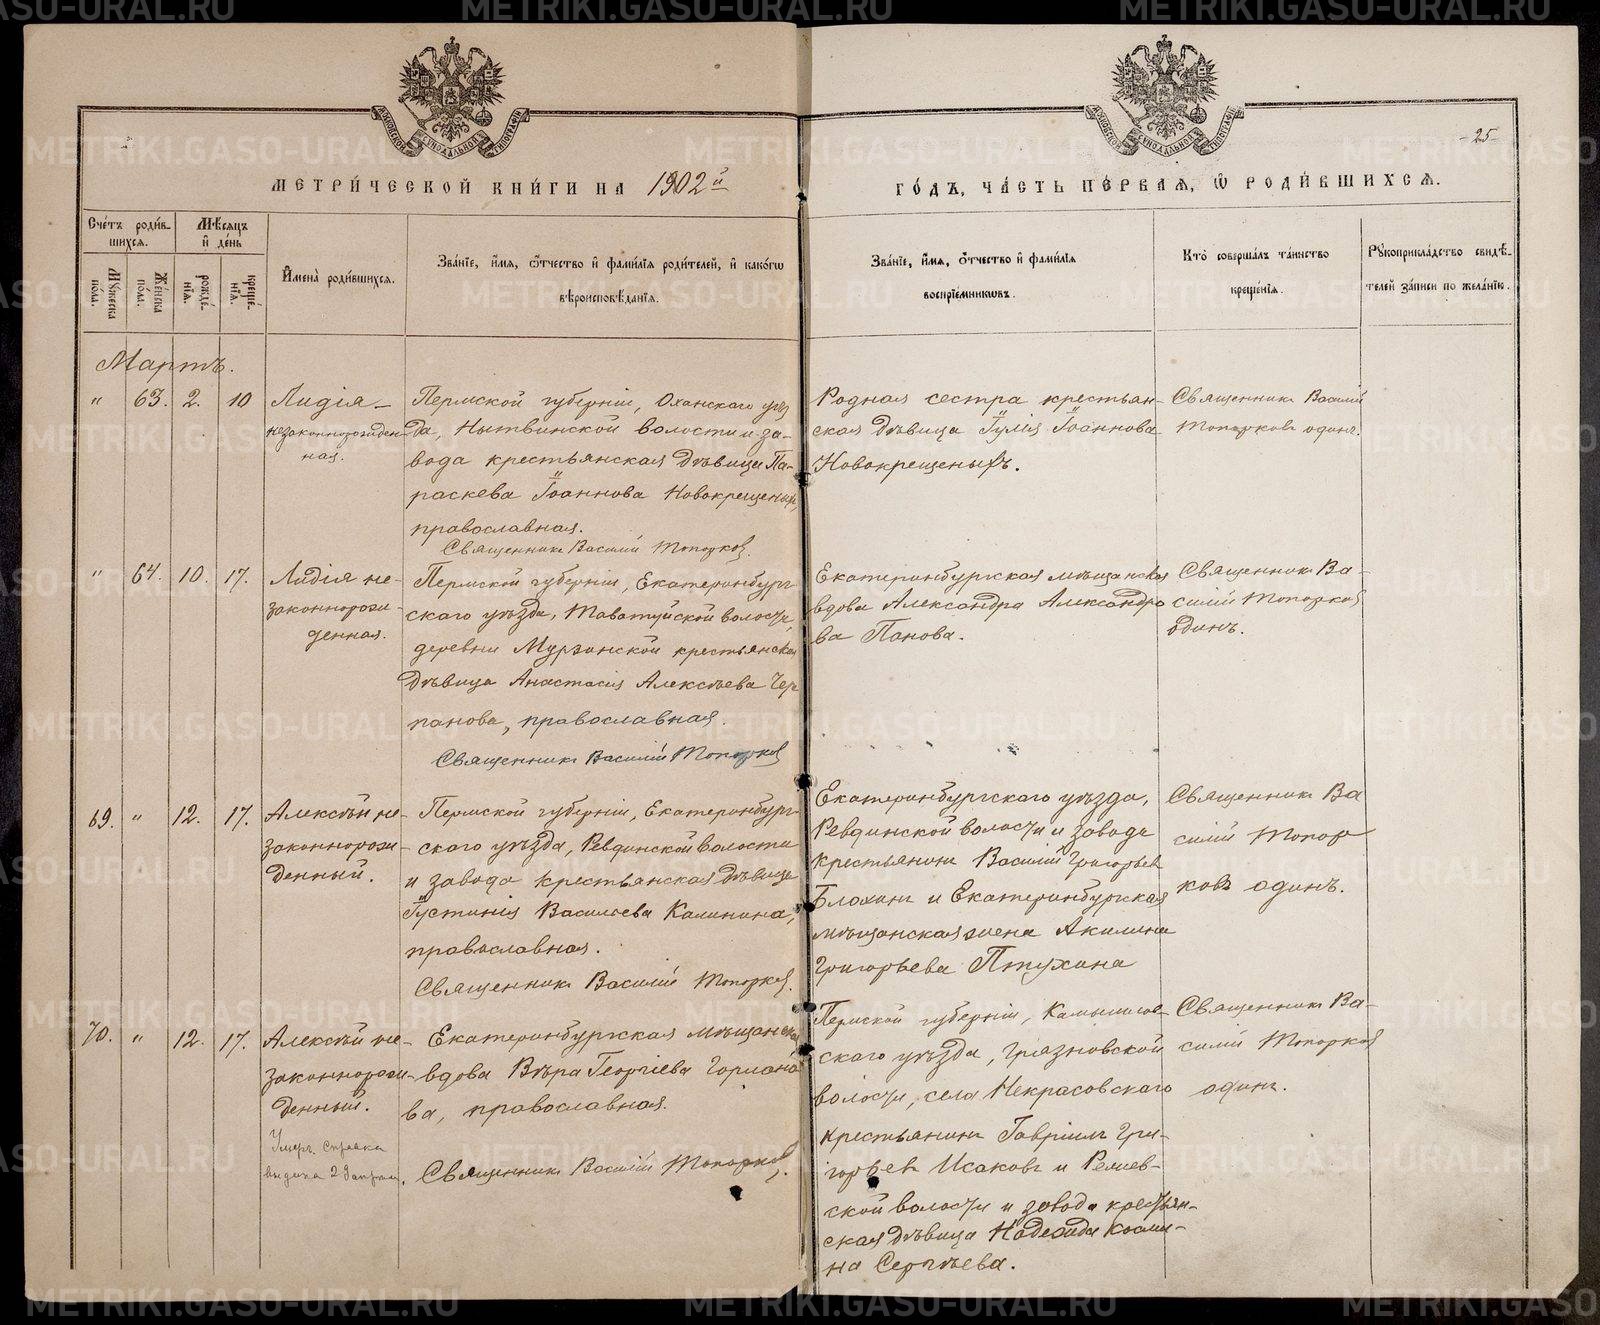 МЕТРИ́ЧЕСКОЙ КНИ́ГИ НА 1902й
ГО́ДЪ, ЧА́СТЬ ПЕ́РВАЯ, Ѡ РОДИ́ВШИХСЯ.
-25-
Сче́тъ роди́в-
шихся.
Мѣ́сяцъ
и де́нь
Му́жеска
по́ла.
Же́нска
по́ла.
рожде́-
нія.
креще́-
нія.
Имена̀ роди́вшихся.
Зва́ніе, и́мя, ѻ́тчество и фами́лія роди́телей, и како́гѡ
вѣроисповѣ́данія.
Зва́ніе, и́мя, ѻ́тчество и фами́лія
воспріе́мниковъ.
Кто̀ соверша́лъ та́инство
креще́нія.
Рꙋкоприкла́дство свидѣ́-
телей за́писи по жела́нію.
Мартъ.
" 63. 2. 10
Лидія –
незаконнорожден-
ная.
Пермской губерніи, Оханскаго уѣз
да, Нытвинской волости и за-
вода крестьянская дѣвица Па-
раскева Іоаннова Новокрещеныхъ,
православная.
Священникъ Василій Топорковъ.
Родная сестра крестьян-
ская дѣвица Іулія Іоаннова
Новокрещеныхъ.
Священникъ Василій
Топорковъ одинъ.
" 64. 10. 17.
Лидія не-
законнорож-
денная.
Пермской губерніи, Екатеринбург-
скаго уѣзда, Таватуйской волости,
деревни Мурзинской крестьянская
дѣвица Анастасія Алексѣева Чер
панова, православная.
Священникъ Василій Топорковъ
Екатеринбургская мѣщанская
вдова Александра Александро
ва Панова.
Священникъ Ва-
силій Топорковъ
одинъ.
69. " 12. 17.
Алексѣй не-
законнорож-
денный.
Пермской губерніи, Екатеринбург-
скаго уѣзда, Ревдинской волости
и завода крестьянская дѣвица
Іустинія Васильева Калинина,
православная.
Священникъ Василій Топорковъ.
Екатеринбургскаго уѣзда,
Ревдинской волости и завода
крестьянинъ Василій Григорьевъ
Блохинъ и Екатеринбургская
мѣщанская жена Акилина
Григорьева Птухина
Священникъ Ва
силій Топор
ковъ одинъ.
70. " 12. 17.
Алексѣй не-
законнорож-
денный.
Умеръ. Справка
выдана
Екатеринбургская мѣщанская
вдова Вѣра Георгіева Горлано
ва, православная.
Священникъ Василій Топорковъ.
Пермской губерніи, Камышлов-
скаго уѣзда, Грязновской
волости, села Некрасовскаго
крестьянинъ Гавріилъ Гри-
горьевъ Исаковъ и Режев-
ской волости и завода крестьян-
ская дѣвица Надежда Косми-
на Сергѣева.
Священникъ Ва-
силій Топорковъ
одинъ.
METRIKI.GASO-URAL.RU